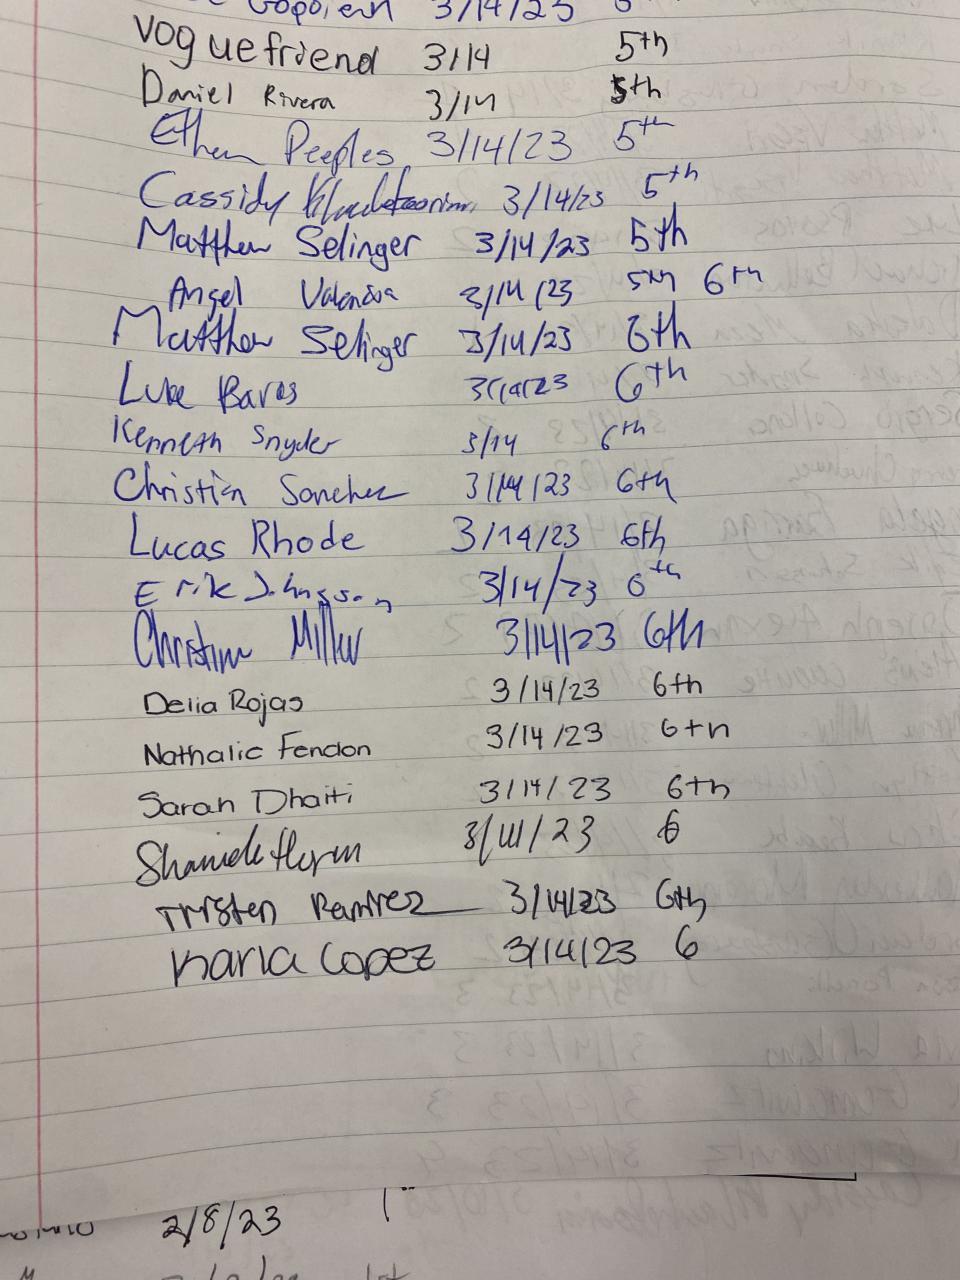 3/14/23
Voguefriend 3/14 5th
Daniel Rivera 3/14 5th
Ethan Peeples 3/14/23 5th
Cassidy 3/14/23 5th
Matthew Selinger 3/14/23 5th
Angel Valencia 3/14/23 5th 6th
Matthew Selinger 3/14/23 6th
Luke Baros 3/14/23 6th
Kenneth Snyder 3/14 6th
Christian Sanchez 3/14/23 6th
Lucas Rhode 3/14/23 6th
Erik Johnsson 3/14/23 6th
Christian Miller 3/14/23 6th
Delia Rojas 3/14/23 6th
Nathalie Fendon 3/14/23 6th
Sarah Dhaiti 3/14/23 6th
3/14/23 6
Tristen Ramirez 3/14/23 6th
Karla Lopez 3/14/23 6
2/8/23